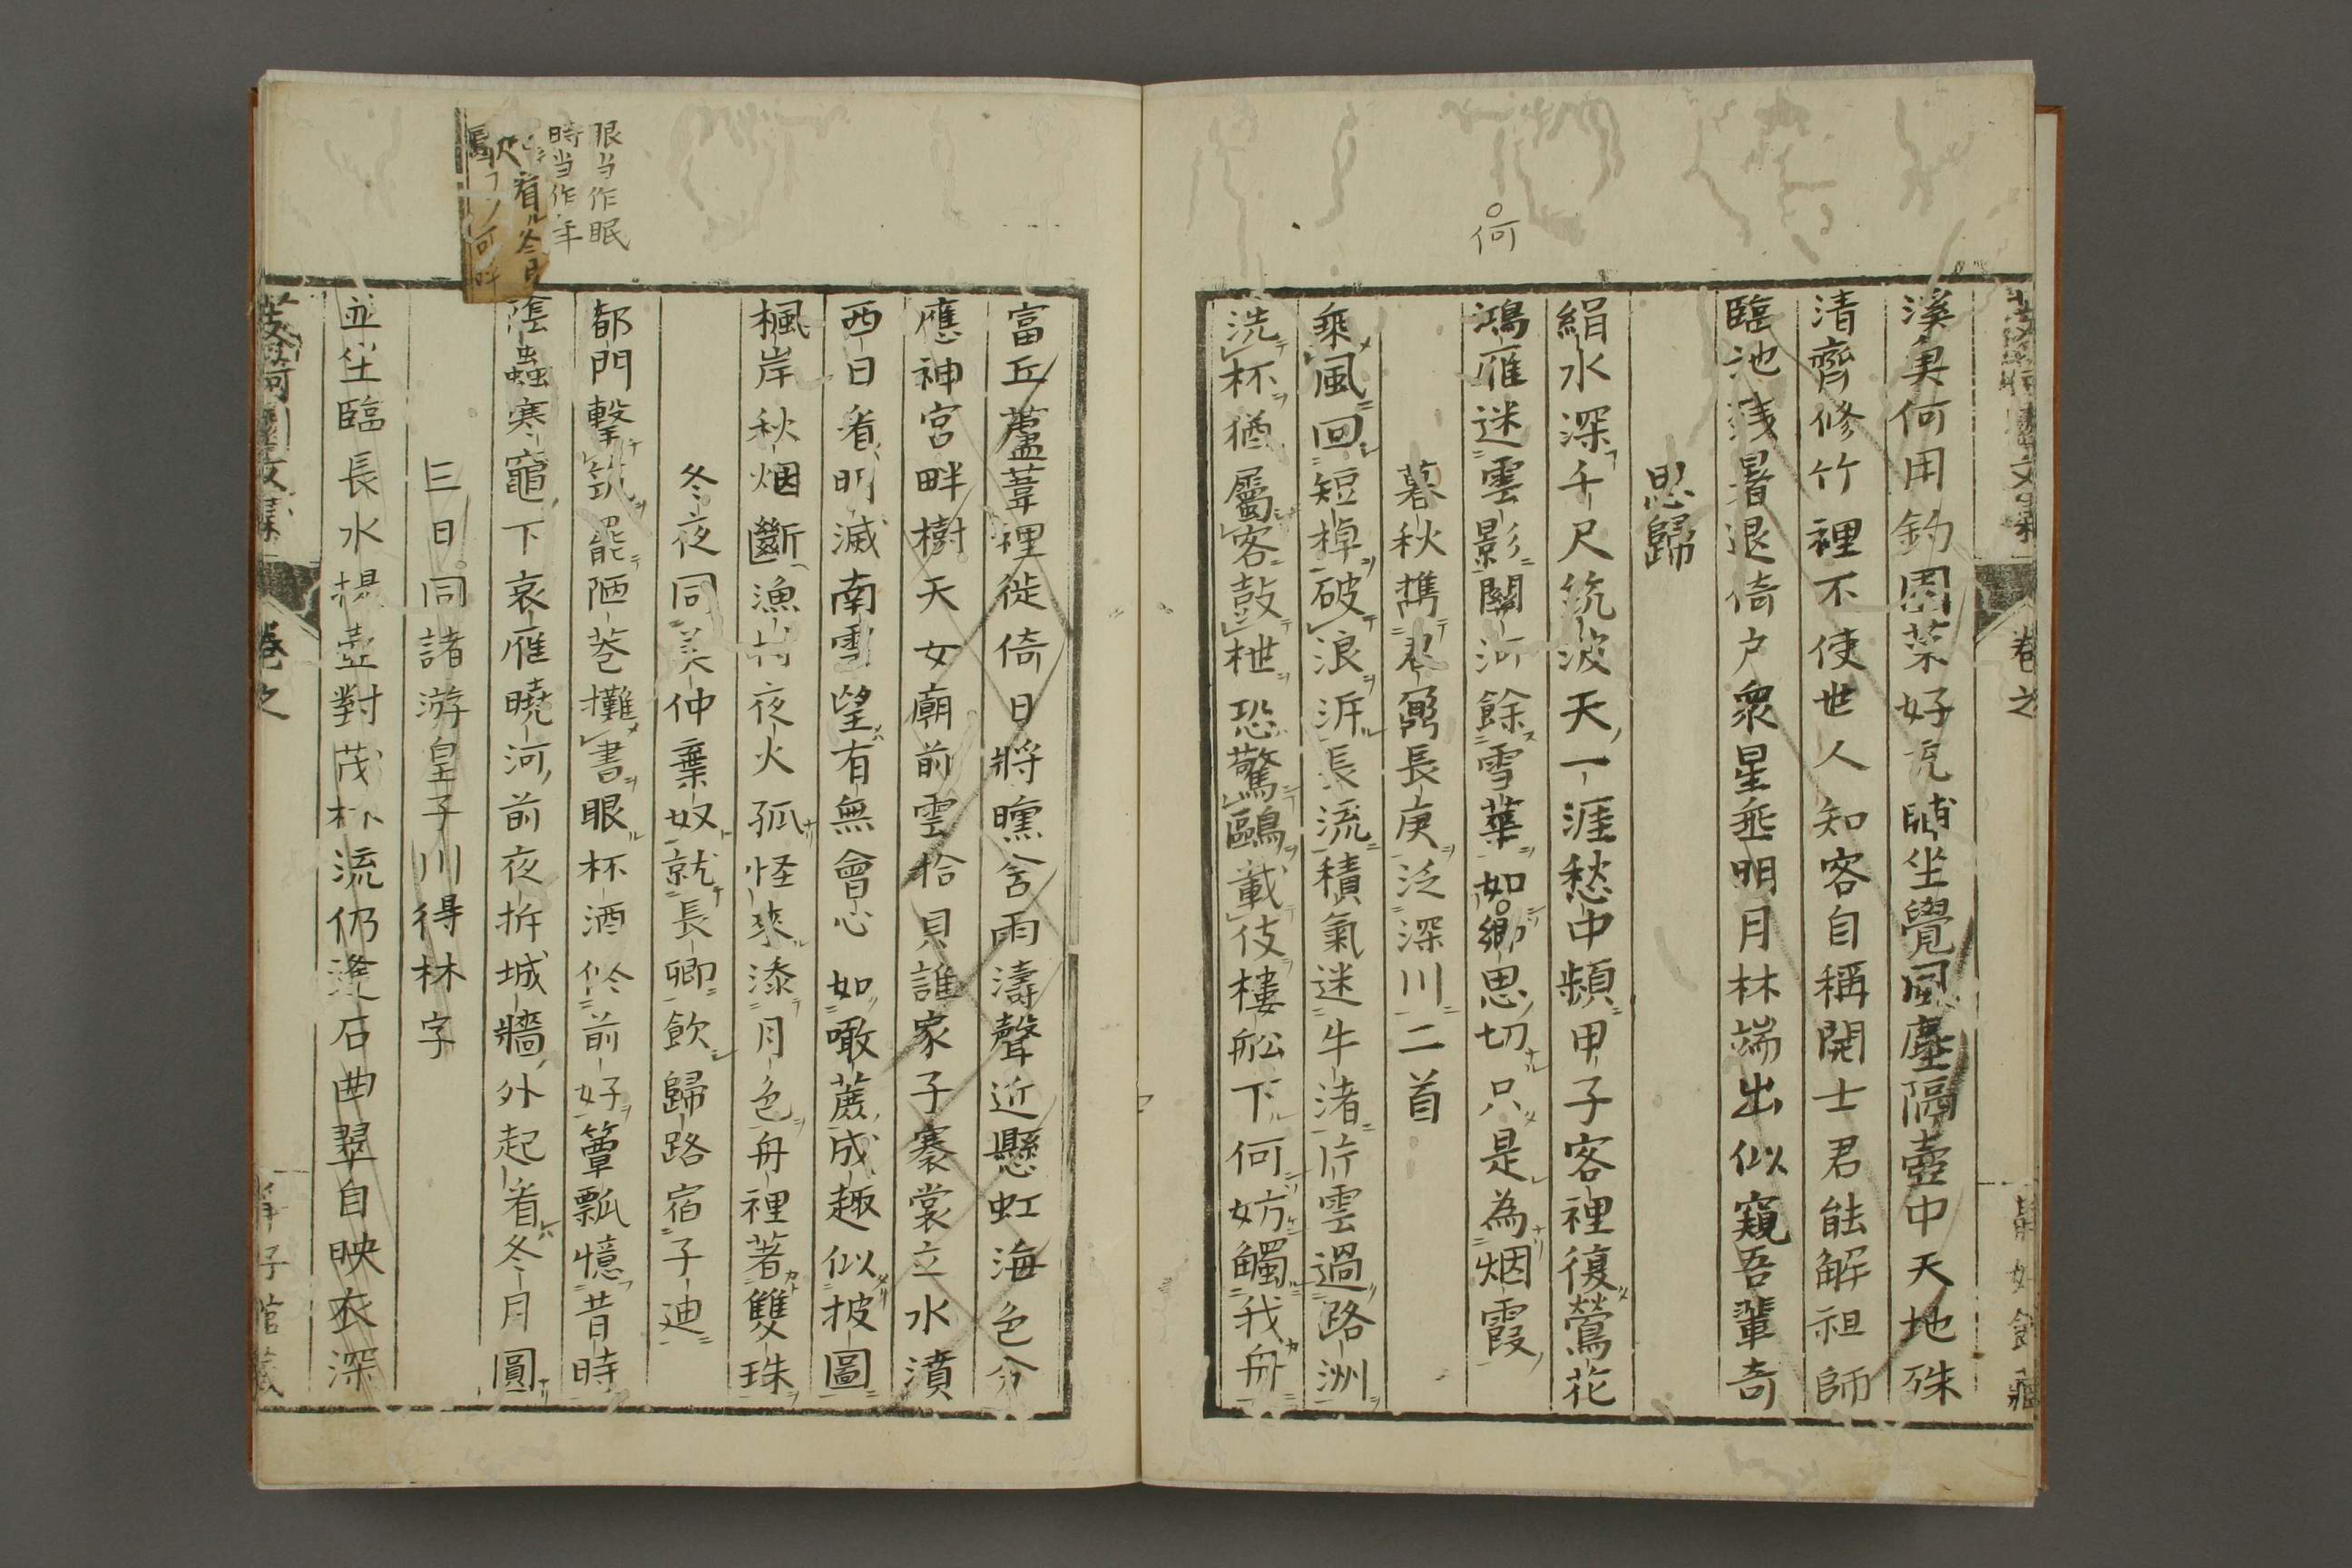 溪臾何用釣園菜好充餔坐覺風塵隔壺中天地殊
清齊修竹裡不使世人知客自稱開士君能解祖師
臨池残暑退倚戸衆星垂明月林端出似窺吾輩奇
思歸
絹水深千尺筑波天一涯愁中頻甲子客裡復鶯花
鴻雁迷雲影關河餘雪華如鄉思切只是為烟霞
何
暮秋携君粥長庚泛深川二首
乘風回短棹破浪泝長流積氣迷牛渚片雲過路洲
洗杯猶屬客鼓枻恐驚鷗載伎樓舩下何妨觸我舟
富丘蘆葦裡徙倚日將曛含雨濤聲近懸虹海色分
應神宮畔樹天女廟前雲拾貝誰家子褰裳立水濆
西日看明滅南雪望有無會心如噉蔗成趣似披圖
楓岸秋烟斷漁村夜火孤怪來添月色舟裡著雙珠
冬夜同美仲棄奴就長卿飲歸路宿子迪
都門擊筑罷陋巷攤書眼杯酒似前好簟瓢憶昔時
陰蟲寒竈下哀雁曉河前夜柝城牆外起看冬月圓
眼当作眠
時当作年
三日同諸游皇子川得林字
並坐臨長水提壺對茂林流仍逢石曲翠自映衣深
卷之
卷之